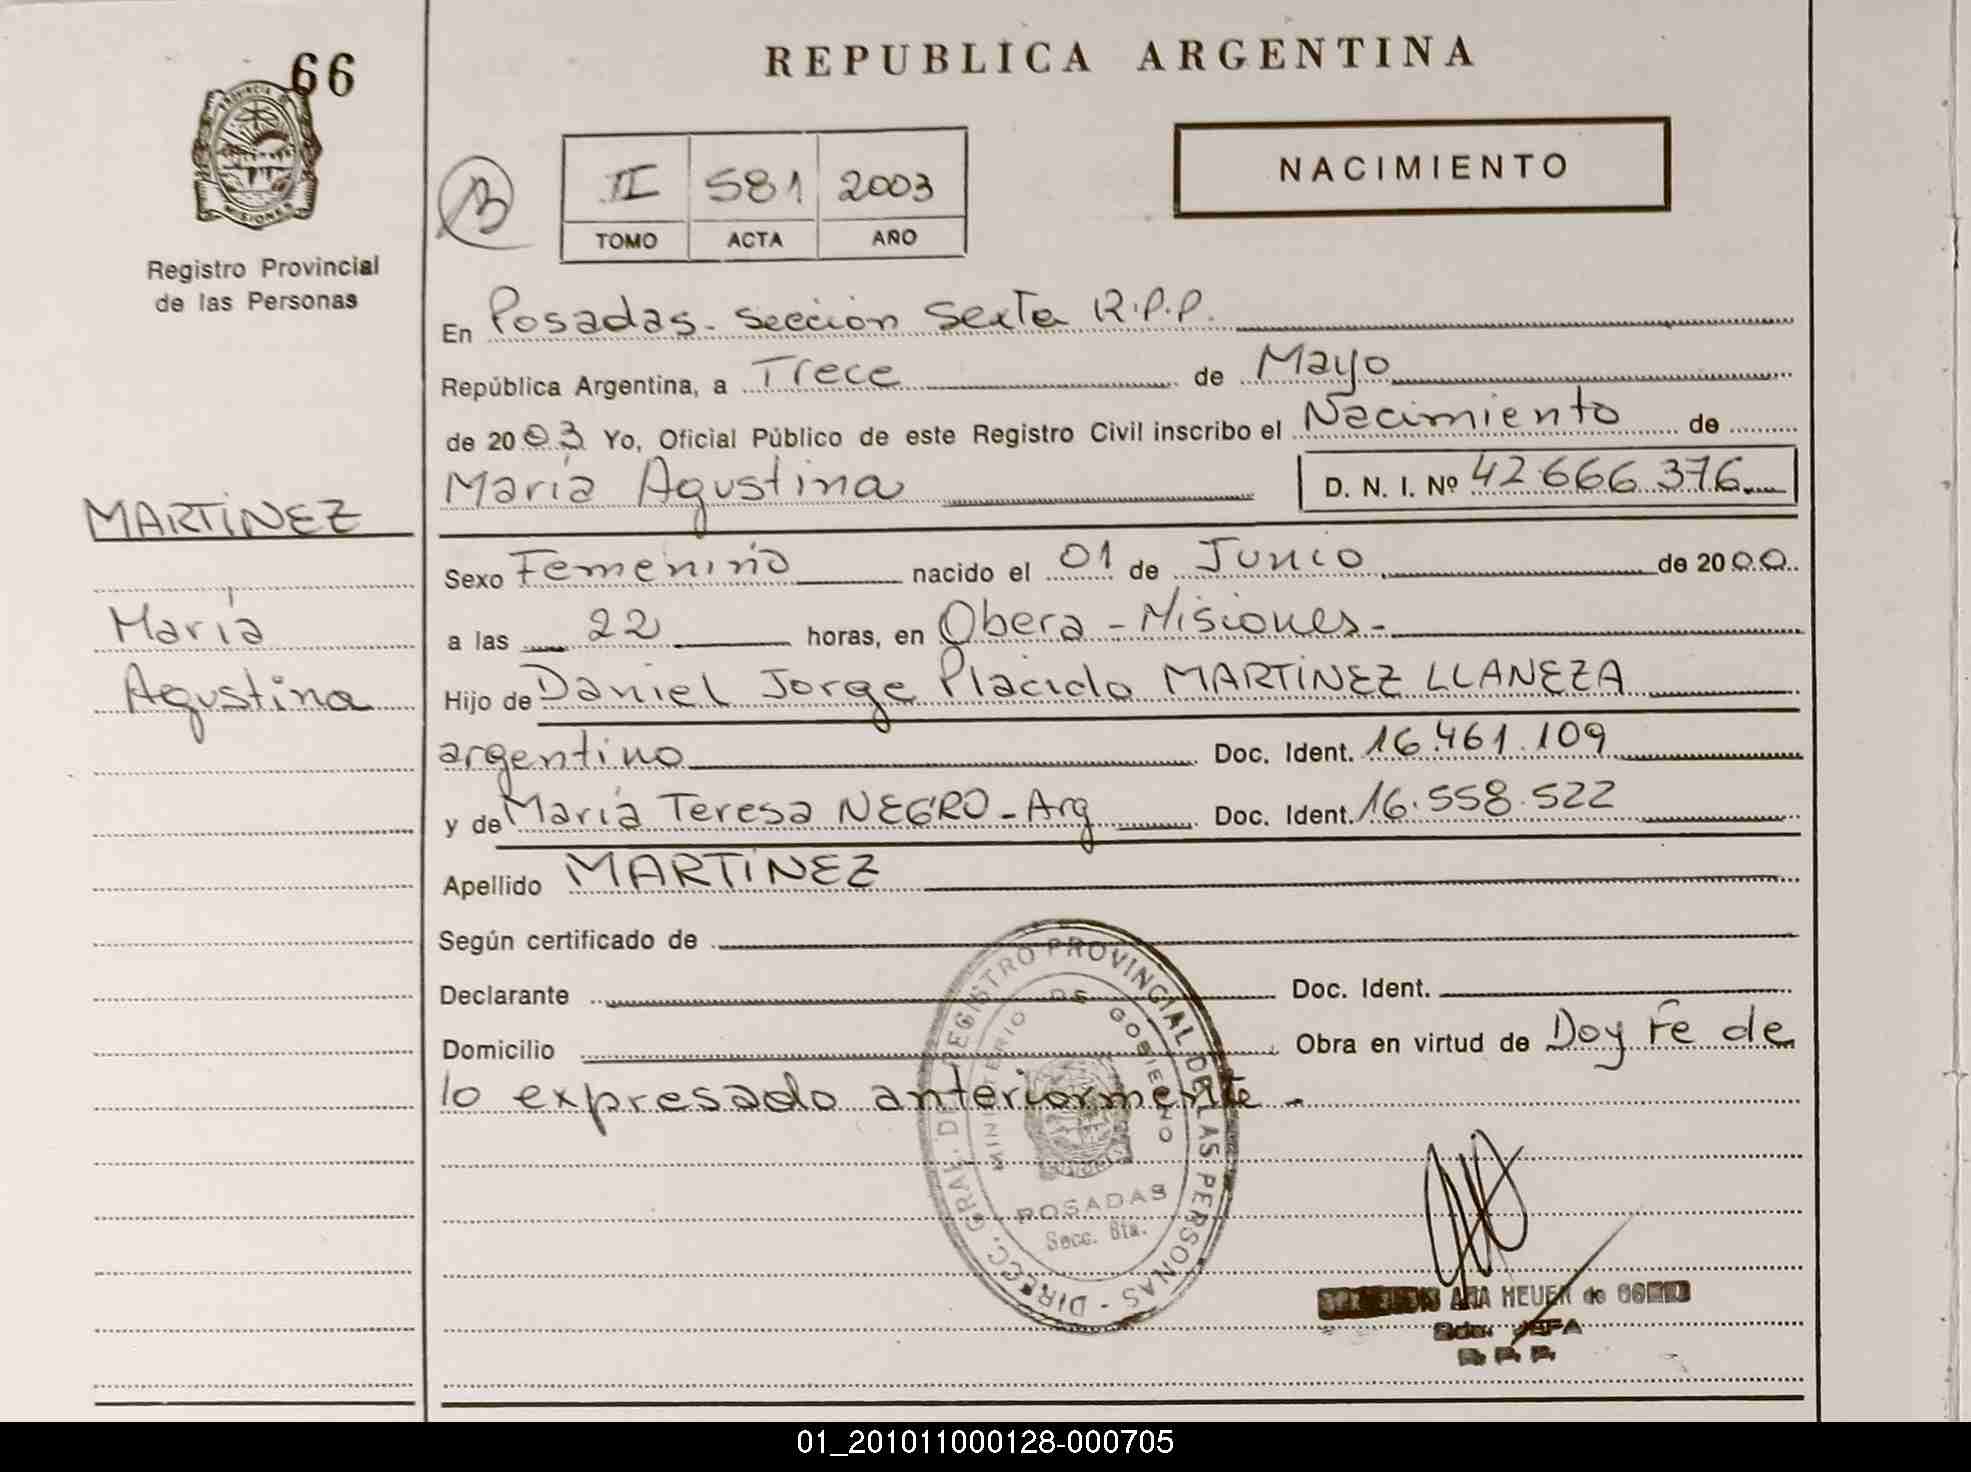 66
PROVINCIA D
MISIONES
Registro Provincial
de las Personas
MARTÍNEZ
María
Agustina
REPUBLICA ARGENTINA
B
II 581 2003
TOMO ACTA AÑO
NACIMIENTO
En Posadas. Sección Sexta R.P.P.
República Argentina, a Trece de Mayo
de 2003 Yo, Oficial Público de este Registro Civil inscribo el Nacimiento de
María Agustina D. N. I. Nº 42.666.376
Sexo Femenino nacido el 01 de Junio de 2000
a las 22 horas, en Obera - Misiones.-
Hijo de Daniel Jorge Placido MARTÍNEZ LLANEZA
argentino Doc. Ident. 16.461.109
y de María Teresa NEGRO - Arg Doc. Ident. 16.558.522
Apellido MARTÍNEZ
Según certificado de
Declarante Doc. Ident.
Domicilio Obra en virtud de Doy fe de
lo expresado anteriormente.-
DIREC. GRAL. DE REGISTRO PROVINCIAL DE LAS PERSONAS -
MINISTERIO DE GOBIERNO
POSADAS
Secc. 6ta.
ANA HEUER de
JEFA
R. P. P.
01_201011000128-000705